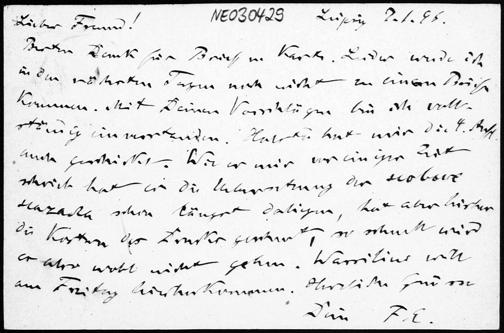 Lieber Freund! NEO30429 Leipzig 7.1.96.
Besten Dank für Brief u. Karte. Leider werde ich
in den nächsten Tagen noch nicht zu einem Briefe
kommen. Mit Deinen Vorschlägen bin ich voll-
ständig einverstanden. hat mir die 4. Aufl.
auch geschickt. Wie er mir vor einiger Zeit
schrieb hat er die Uebersetzung der
schon längst daliegen, hat aber bisher
die Kosten des Druckes gescheut, so schnell wird
es also wohl nicht gehen. will
am Freitag hierherkommen. Herzliche Grüsse
Dein F.